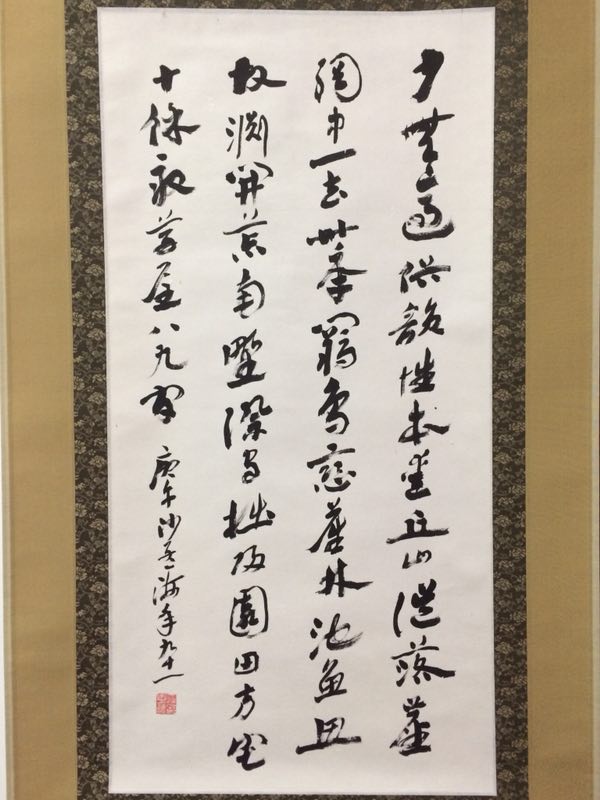 少無適俗韻性本愛丘山誤落塵
網中一去卅年羈鳥戀舊林池魚思
故淵開荒南墅際守拙歸園田方宅
十餘畝草屋八九間 庚午沙孟海年九十一